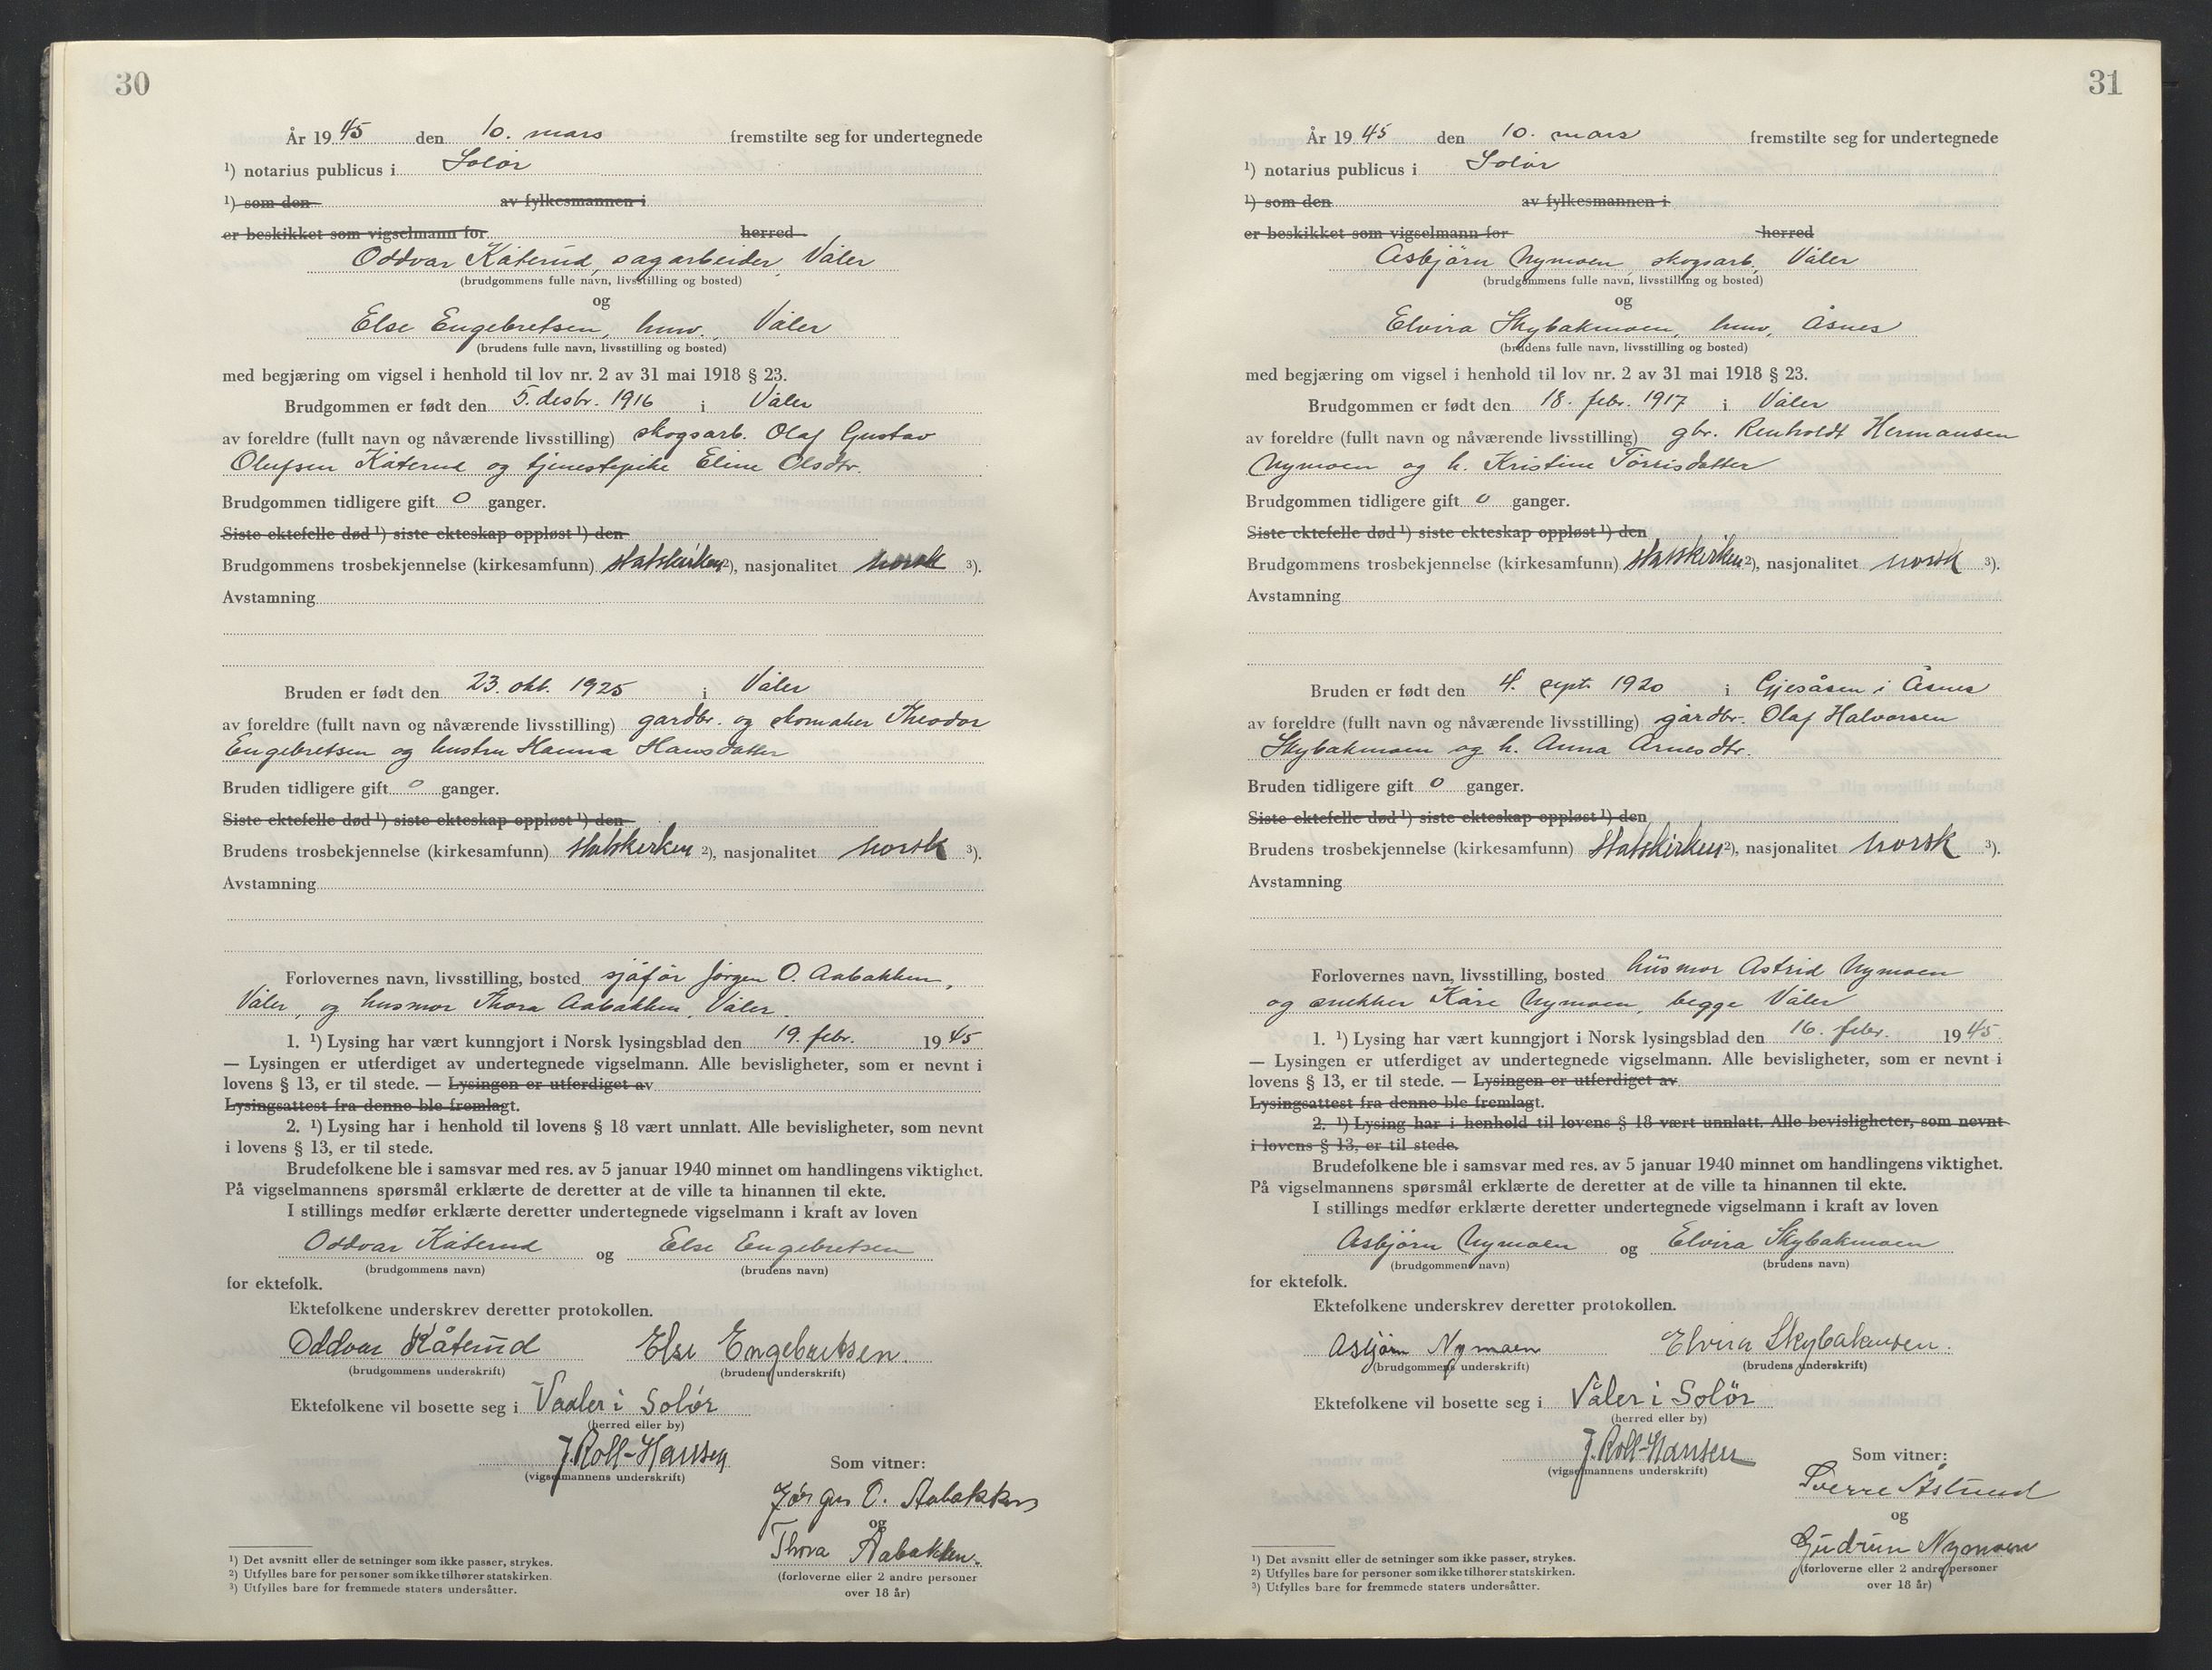 30
År 1945 den 10. mars fremstilte seg for undertegnede
¹) notarius publicus i Solør
¹) som den av fylkesmannen i
er beskikket som vigselmann for herred
Oddvar Kåterud, sagarbeider, Våler
(brudgommens fulle navn, livsstilling og bosted)
og
Else Engebretsen, husv. Våler
(brudens fulle navn, livsstilling og bosted)
med begjæring om vigsel i henhold til lov nr. 2 av 31 mai 1918 § 23.
Brudgommen er født den 5. desbr. 1916 i Våler
av foreldre (fullt navn og nåværende livsstilling) skogsarb. Olaf Gustav
Olufsen Kåterud og tjenestepike Eline Olsdtr.
Brudgommen tidligere gift 0 ganger.
Siste ektefelle død ¹) siste ekteskap oppløst ¹) den
Brudgommens trosbekjennelse (kirkesamfunn) statskirken ²), nasjonalitet norsk ³).
Avstamning
Bruden er født den 23. okt. 1925 i Våler
av foreldre (fullt navn og nåværende livsstilling) gardbr. og skomaker Theodor
Engebretsen og hustru Hanna Hansdatter
Bruden tidligere gift 0 ganger.
Siste ektefelle død ¹) siste ekteskap oppløst ¹) den
Brudens trosbekjennelse (kirkesamfunn) statskirken ²), nasjonalitet norsk ³).
Avstamning
Forlovernes navn, livsstilling, bosted sjåfør Jørgen O. Aabakken,
Våler, og husmor Thora Aabakken, Våler.
1. ¹) Lysing har vært kunngjort i Norsk lysingsblad den 19. febr. 1945
— Lysingen er utferdiget av undertegnede vigselmann. Alle bevisligheter, som er nevnt i
lovens § 13, er til stede. — Lysingen er utferdiget av
Lysingsattest fra denne ble fremlagt.
2. ¹) Lysing har i henhold til lovens § 18 vært unnlatt. Alle bevisligheter, som nevnt
i lovens § 13, er til stede.
Brudefolkene ble i samsvar med res. av 5 januar 1940 minnet om handlingens viktighet.
På vigselmannens spørsmål erklærte de deretter at de ville ta hinannen til ekte.
I stillings medfør erklærte deretter undertegnede vigselmann i kraft av loven
Oddvar Kåterud og Else Engebretsen
(brudgommens navn) (brudens navn)
for ektefolk.
Ektefolkene underskrev deretter protokollen.
Oddvar Kåterud Else Engebretsen.
(brudgommens underskrift) (brudens underskrift)
Ektefolkene vil bosette seg i Vaaler i Solør
(herred eller by)
J. Roll-Hansen
(vigselmannens underskrift)
Som vitner:
Jørgen O. Aabakken
og
Thora Aabakken.
(forloverne eller 2 andre personer
over 18 år)
¹) Det avsnitt eller de setninger som ikke passer, strykes.
²) Utfylles bare for personer som ikke tilhører statskirken.
³) Utfylles bare for fremmede staters undersåtter.
31
År 1945 den 10. mars fremstilte seg for undertegnede
¹) notarius publicus i Solør
¹) som den av fylkesmannen i
er beskikket som vigselmann for herred
Asbjørn Nymoen, skogsarb., Våler
(brudgommens fulle navn, livsstilling og bosted)
og
Elvira Skybakmoen, husv, Åsnes
(brudens fulle navn, livsstilling og bosted)
med begjæring om vigsel i henhold til lov nr. 2 av 31 mai 1918 § 23.
Brudgommen er født den 18. febr. 1917 i Våler
av foreldre (fullt navn og nåværende livsstilling) gbr. Renholdt Hermansen
Nymoen og h. Kristine Tørrisdatter
Brudgommen tidligere gift 0 ganger.
Siste ektefelle død ¹) siste ekteskap oppløst ¹) den
Brudgommens trosbekjennelse (kirkesamfunn) statskirken ²), nasjonalitet norsk ³).
Avstamning
Bruden er født den 4. sept. 1920 i Gjesåsen i Åsnes
av foreldre (fullt navn og nåværende livsstilling) gårdbr. Olaf Halvorsen
Skybakmoen og h. Anna Arnesdtr.
Bruden tidligere gift 0 ganger.
Siste ektefelle død ¹) siste ekteskap oppløst ¹) den
Brudens trosbekjennelse (kirkesamfunn) statskirken ²), nasjonalitet norsk ³).
Avstamning
Forlovernes navn, livsstilling, bosted husmor Astrid Nymoen
og snekker Kåre Nymoen, begge Våler
1. ¹) Lysing har vært kunngjort i Norsk lysingsblad den 16. febr. 1945.
— Lysingen er utferdiget av undertegnede vigselmann. Alle bevisligheter, som er nevnt i
lovens § 13, er til stede. — Lysingen er utferdiget av
Lysingsattest fra denne ble fremlagt.
2. ¹) Lysing har i henhold til lovens § 18 vært unnlatt. Alle bevisligheter, som nevnt
i lovens § 13, er til stede.
Brudefolkene ble i samsvar med res. av 5 januar 1940 minnet om handlingens viktighet.
På vigselmannens spørsmål erklærte de deretter at de ville ta hinannen til ekte.
I stillings medfør erklærte deretter undertegnede vigselmann i kraft av loven
Asbjørn Nymoen og Elvira Skybakmoen
(brudgommens navn) (brudens navn)
for ektefolk.
Ektefolkene underskrev deretter protokollen.
Asbjørn Nymoen Elvira Skybakmoen.
(brudgommens underskrift) (brudens underskrift)
Ektefolkene vil bosette seg i Våler i Solör
(herred eller by)
J. Roll-Hansen
(vigselmannens underskrift)
Som vitner:
Sverre Åslund
og
Gudrun Nymoen
(forloverne eller 2 andre personer
over 18 år)
¹) Det avsnitt eller de setninger som ikke passer, strykes.
²) Utfylles bare for personer som ikke tilhører statskirken.
³) Utfylles bare for fremmede staters undersåtter.